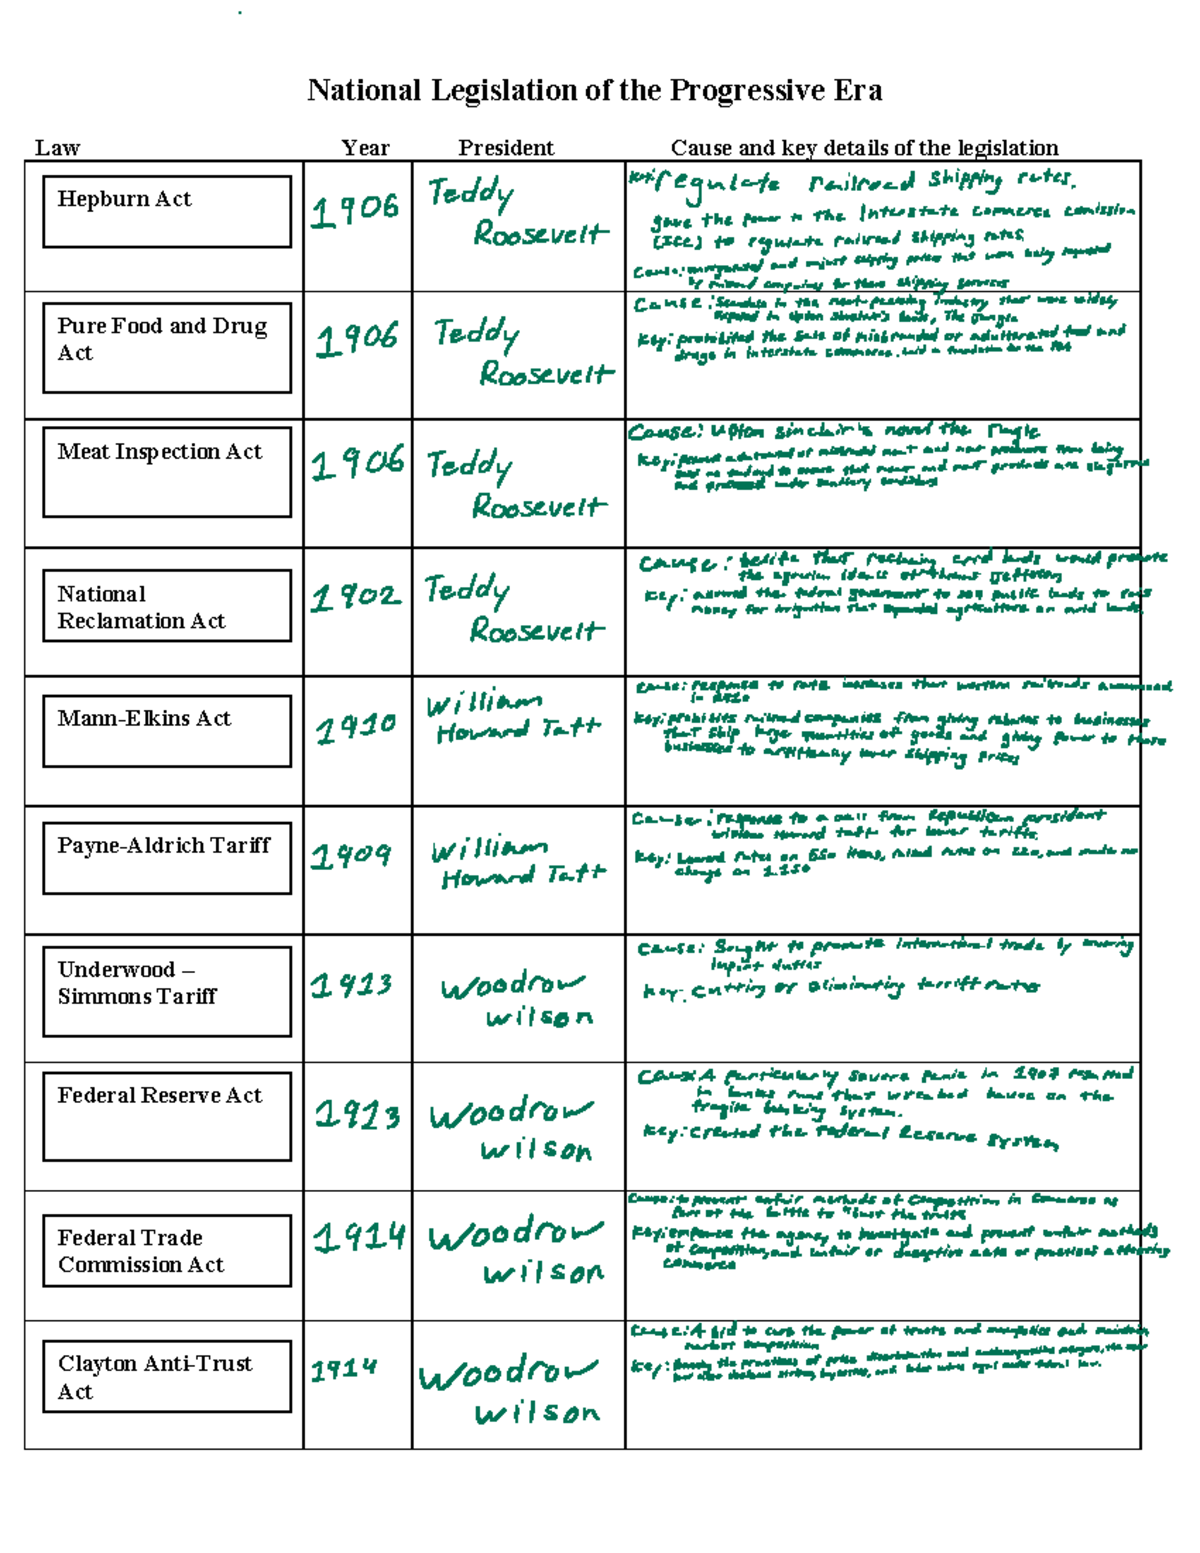 National Legislation of the Progressive Era
Law Year President Cause and key details of the legislation
Hepburn Act
1906
Teddy
Roosevelt
regulate railroad shipping rates.
gave the power to the Interstate commerce comission
(ICC) to regulate railroad shipping rates
Cause: and unjust shipping prices that were being requested
by railroad companies for there shipping services
Pure Food and Drug
Act
1906
Teddy
Roosevelt
Cause: in the meat-packing industry that were widely
in Upton Sinclair's book, The Jungle
Key: prohibited the sale of misbranded or adulterated food and
drugs in interstate commerce, laid a foundation for the FDA
Meat Inspection Act
1906
Teddy
Roosevelt
Cause: Upton sinclair's novel the Jungle
Key: adulterated or misbranded meat and meat products from being
sold as food and to ensure that meat and meat products are
and processed under sanitary conditions
National
Reclamation Act
1902
Teddy
Roosevelt
Cause: belife that reclaiming arid lands would promote
the agrarian of thomas jefferson
Key: allowed the federal government to sell public lands to
money for irrigation that expanded agriculture on arid lands.
Mann-Elkins Act
1910
William
Howard Taft
Cause: response to rate increases that western railroads announced
in 1910
Key: prohibits railroad companies from giving rebates to businesses
that ship large quantities of goods and giving power to those
businesses to lower shipping prices
Payne-Aldrich Tariff
1909
William
Howard Taft
Cause: response to a call from Republican president
william Howard taft for lower tariffs
Key: Lowered rates on 650 items, raised rates on 220, and made no
change on 1.150
Underwood –
Simmons Tariff
1913
Woodrow
wilson
Cause: Sought to promote international trade by lowering
import duties
Key: cutting or eliminating tarriff rates
Federal Reserve Act
1913
Woodrow
wilson
Cause: A particularly severe panic in 1907 resulted
in banks runs that wreaked havoc on the
fragile banking system.
Key: created the Federal Reserve System
Federal Trade
Commission Act
1914
Woodrow
wilson
Cause: to prevent unfair methods of competition in commerce as
part of the battle to "bust the trusts
Key: empower the agency to investigate and prevent unfair methods
of competition, and unfair or deceptive acts or practices affecting
commerce
Clayton Anti-Trust
Act
1914
Woodrow
wilson
Cause: A bid to curb the power of trusts and monopolies and maintain
market competition
Key: the practices of price discrimination and anticompetitive mergers,
strikes, boycotts, and labor unions legal under federal law.